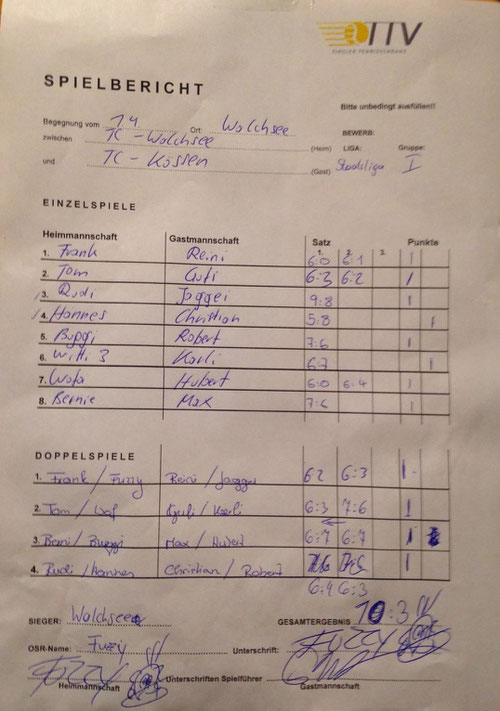 TTV
TIROLER TENNISVERBAND
SPIELBERICHT
Bitte unbedingt ausfüllen!!
Begegnung vom 1.4 Ort: Walchsee
zwischen TC-Walchsee (Heim)
und TC-Kössen (Gast)
BEWERB:
LIGA: Gruppe:
Stadsliga I
EINZELSPIELE
Heimmannschaft Gastmannschaft Satz Punkte
1. 2. 3.
1. Frank Reini 6:0 6:1 1
2. Tom Gufi 6:3 6:2 1
3. Rudi Joggei 9:8 1
4. Hannes Christian 5:8 1
5. Buggi Robert 7:6 1
6. Willi 3 Karli 6:7 1
7. Wolfa Hubert 6:0 6:4 1
8. Bernie Max 7:6 1
DOPPELSPIELE
1. Frank / Fuzzy Reini / Joegger 6:2 6:3 1
2. Tom / Wolf / Karli 6:3 7:6 1
3. Berni / Buggi Max / Hubert 6:7 6:7 1
4. Rudi / Hannes Christian / Robert 1
6:4 6:3
SIEGER: Walchsee GESAMTERGEBNIS 10:3
OSR-Name: Fuzzy Unterschrift: Fuzzy
Fuzzy Unterschriften Spielführer
Heimmannschaft Gastmannschaft